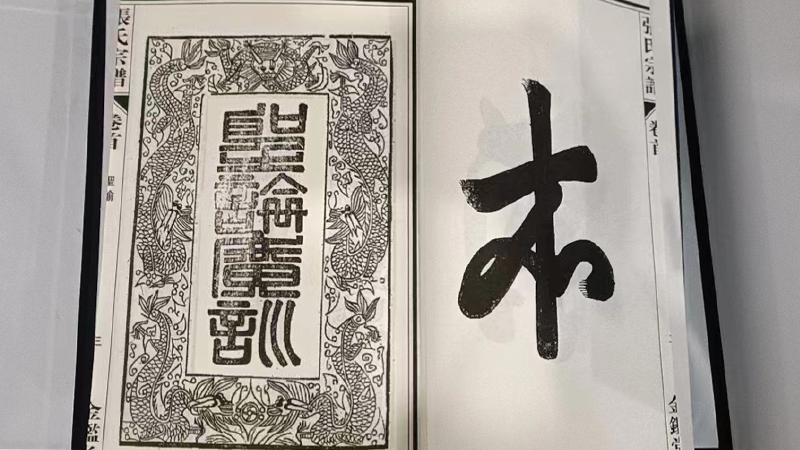 張氏宗譜
卷首
本
聖諭廣訓
張氏宗譜
卷首
聖諭
三
金鑑